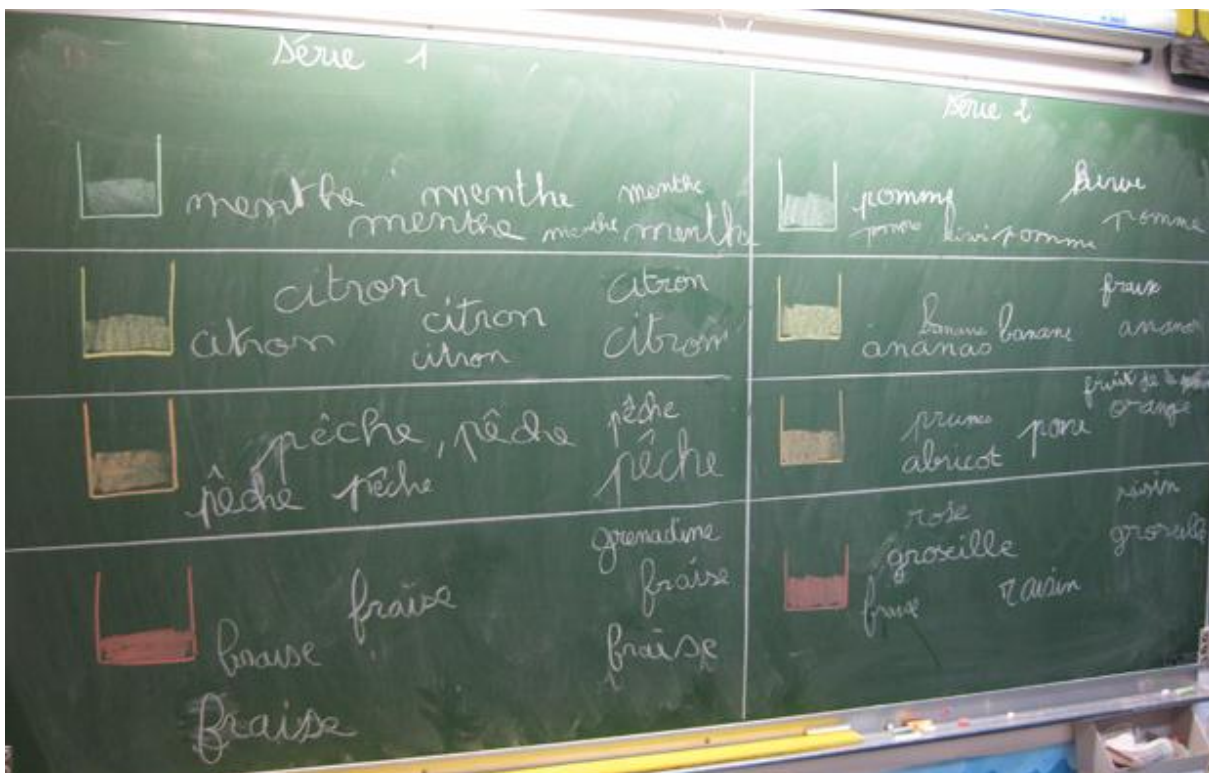 Série 1
menthe menthe menthe
menthe menthe menthe
citron citron
citron citron citron
citron
pêche, pêche pêche
pêche pêche pêche
grenadine
fraise fraise
fraise fraise
fraise
Série 2
pomme kiwi
pomme kiwi pomme pomme
fraise
banane banane ananas
ananas
fruit de la
prunes poire orange
abricot
rose raisin
groseille groseille
fraise raisin